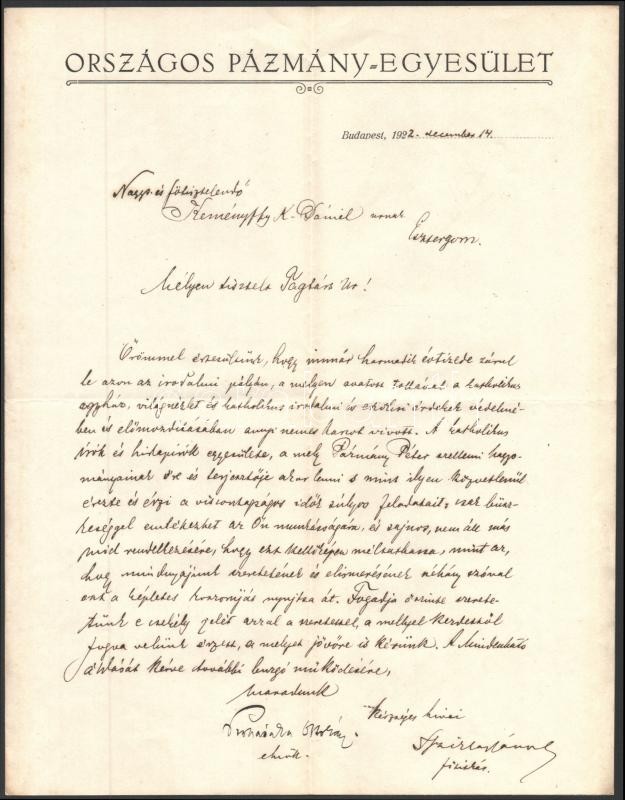 ORSZÁGOS PÁZMÁNY-EGYESÜLET
Budapest, 1922. december 14.
Nagys. és főtisztelendő
Keményffy K. Dániel urnak
Esztergom.
Mélyen tisztelt Tagtárs Ur!
Örömmel értesültünk, hogy immár harmadik évtizede zárul
le azon az irodalmi pályán, a melyen avatott tollával a katholikus
egyház, világnézlet és katholikus irodalmi és érdekek védelmé-
ben és előmozditásában annyi nemes harcot vivott. A katholikus
irók és hirlapirók egyesülete, a mely Pázmány Péter szellemi hagyo-
mányainak őre és terjesztője akar lenni s mint ilyen közvetlenül
érezte és érzi a viszontagságos idők súlyos feladatait, csak büsz-
keséggel emlékezhet az Ön munkásságára, és sajnos, nem áll más
mód rendelkezésére, hogy ezt kellőképen méltathassa, mint az,
hogy mindnyájunk szeretetének és elismerésének néhány szóval
ezt a képletes koszorúját nyujtsa át. Fogadja őszinte szerete-
tünk e csekély jelét azzal a szeretettel, a mellyel kezdettől
fogva velünk érzett, a melyet jövőre is kérünk. A Mindenható
áldását kérve további buzgó működésére,
maradunk
készséges hivei
Prohászka Ottokár
elnök.
János
főtitkár.